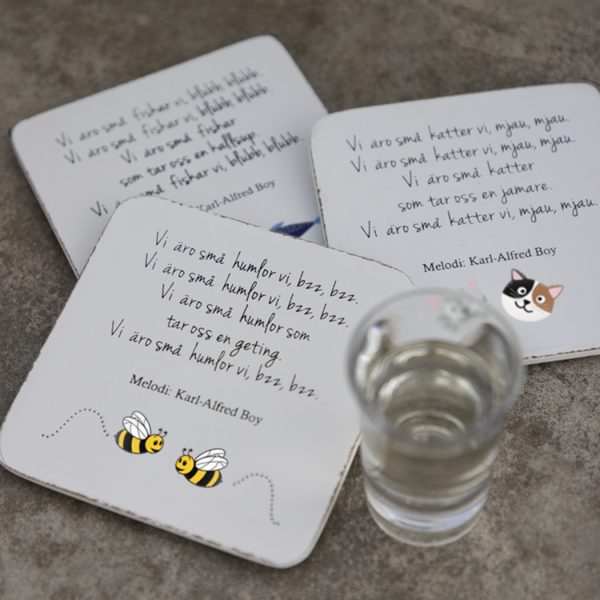 Vi äro små fiskar vi, blubb, blubb.
Vi äro små fiskar vi, blubb, blubb.
Vi äro små fiskar
som tar oss en kallsup.
Vi äro små fiskar vi, blubb, blubb.
Karl-Alfred Boy
Vi äro små katter vi, mjau, mjau.
Vi äro små katter vi, mjau, mjau.
Vi äro små katter
som tar oss en jamare.
Vi äro små katter vi, mjau, mjau.
Melodi: Karl-Alfred Boy
Vi äro små humlor vi, bzz, bzz.
Vi äro små humlor vi, bzz, bzz.
Vi äro små humlor som
tar oss en geting.
Vi äro små humlor vi, bzz, bzz.
Melodi: Karl-Alfred Boy